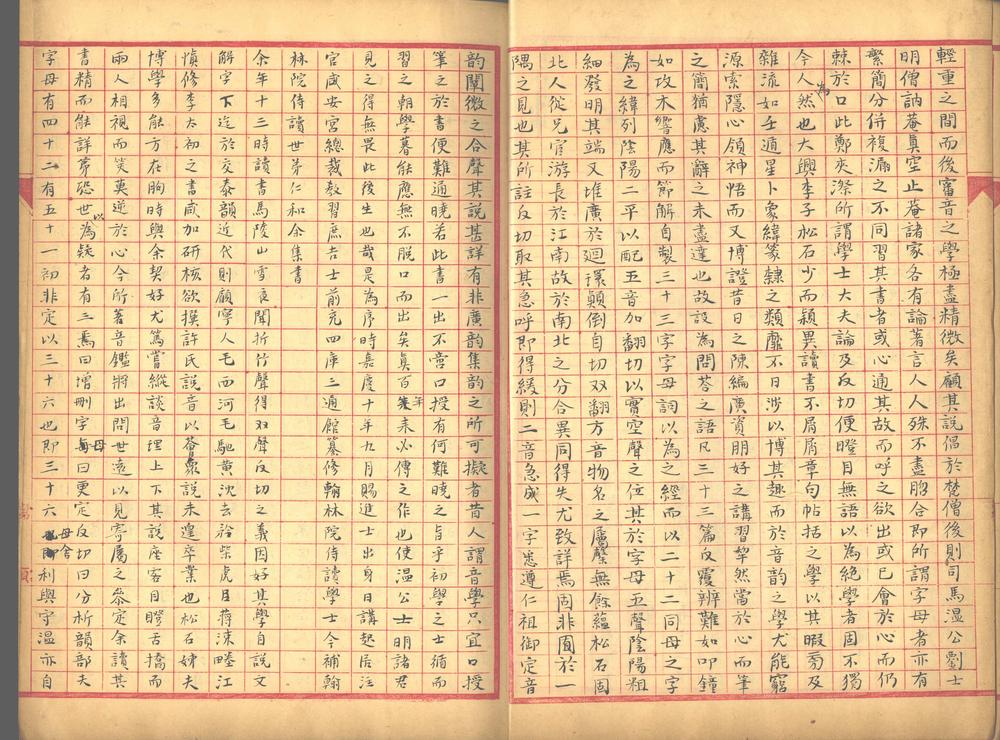 輕重之間而後審音之學極盡精微矣顧其說倡於梵僧後則司馬溫公劉士
明僧訥菴眞空止菴諸家各有論著言人人殊不盡脗合即所謂字母者亦有
繁簡分併複漏之不同習其書者或心通其故而呼之欲出或已會於心而仍
棘於口此鄭夾漈所謂學士大夫論及反切便瞪目無語以為絕學者固不獨
今人為然也大興李子松石少而穎異讀書不屑屑章句帖括之學以其暇旁及
雜流如壬遁星卜象緯篆隸之類靡不日涉以博其趣而於音韵之學尤能窮
源索隱心領神悟而又博證昔日之陳編廣資朋好之講習犂然當於心而筆
之簡猶慮其辭之未盡達也故設為問荅之語凡三十三篇反覆辨難如叩鐘
如攻木響應而節解自製三十三字字母詞以為之經而以二十二同母之字
為之緯列陰陽二平以配五音加翻切以實空聲之位其於字母五聲陰陽粗
細發明其端又堆廣於迴環顛倒自切双翻方音物名之屬罄無餘蘊松石固
北人從兄官游長於江南故於南北之分合異同得失尤致詳焉固非囿於一
隅之見也其所註反切取其急呼即得緩則二音急成一字悉遵仁祖御定音
韵闡微之合聲其說甚詳有非廣韵集韵之所可擬者昔人謂音學只宜口授
筆之於書便難通曉若此書一出不啻口授有何難曉之旨乎初學之士循而
習之朝學暮能應無不脫口而出矣眞百年來必傳之作也使溫公士明諸君
見之得無畏此後生也哉是為序時嘉慶十年九月賜進士出身日講起居注
官咸安宮總裁教習庶吉士前充四庫三通館纂修翰林院侍讀學士今補翰
林院侍讀世弟仁和余集書
余年十三時讀書馬陵山雪夜聞折竹聲得双聲反切之義因好其學自說文
解字下迄於交泰韵近代則顧寧人毛西河毛馳黃沈去矜柴虎臣蔣涑畻江
慎修李太初之書咸加研核欲撰許氏說音以薈眾說未遑卒業也松石姊夫
博學多能方在朐時與余契好尤篤嘗縱談音理上下其說座客目瞪舌撟而
兩人相視而笑莫逆於心今所著音鑑將出問世遠以見寄屬之參定余讀其
書精而能詳第恐世以為疑者有三焉曰增刪字母曰更定反切曰分析韵部夫
字母有四十二有五十一初非定以三十六也即三十六母舍利與守溫亦自